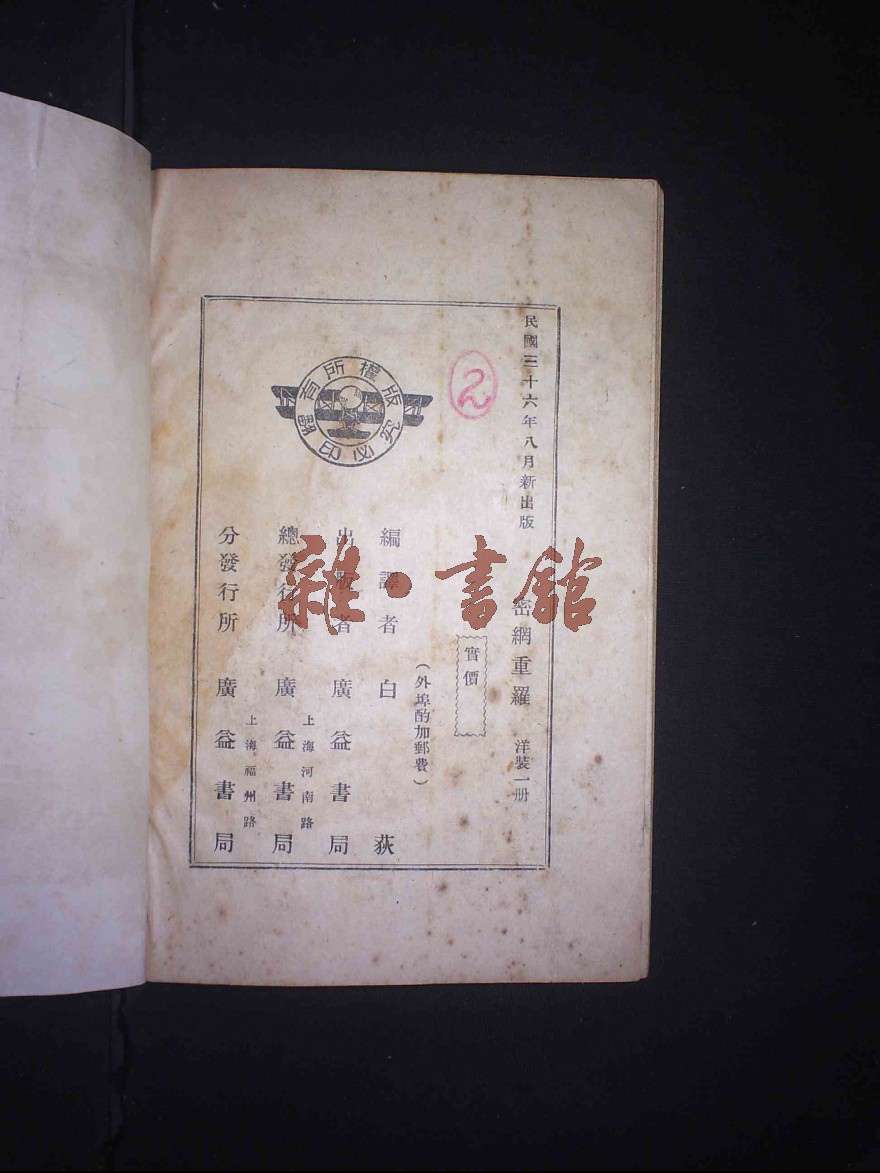 民國三十六年八月新出版
密網重羅 洋裝一册
實價
(外埠酌加郵費)
編譯者 白荻
出版者 廣益書局
總發行所 上海河南路 廣益書局
分發行所 上海福州路 廣益書局
版權所有
翻印必究
2
雜·書館